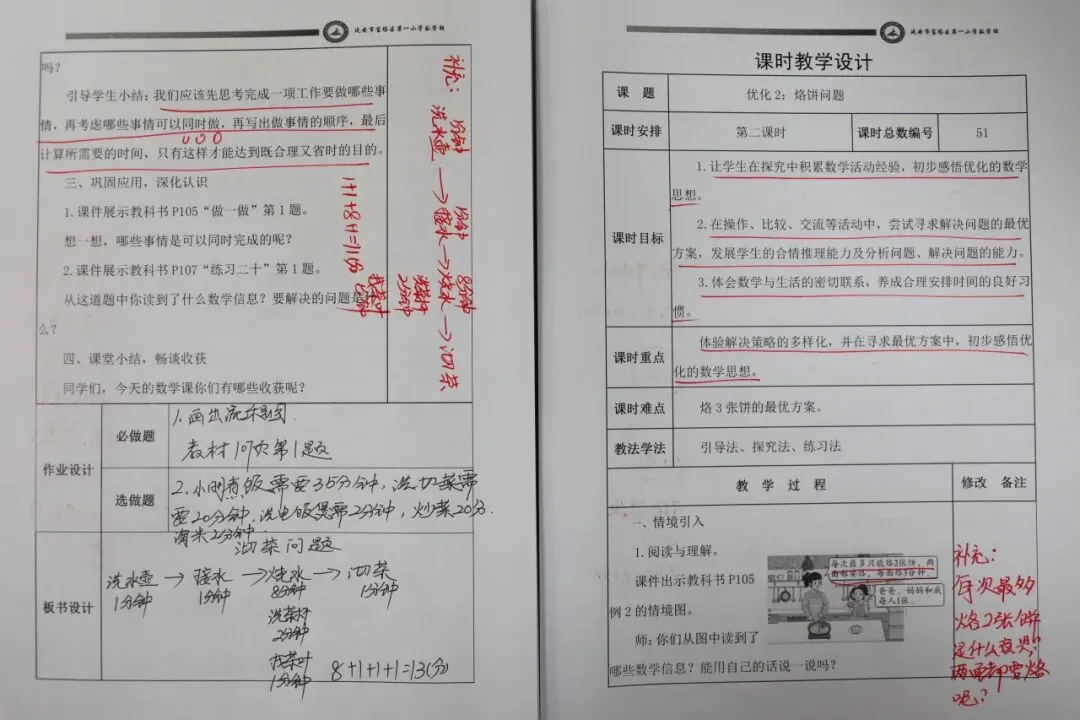 延安市宝塔区第一小学数学组
吗？
引导学生小结：我们应该先思考完成一项工作要做哪些事
情，再考虑哪些事情可以同时做，再写出做事情的顺序，最后
计算所需要的时间，只有这样才能达到既合理又省时的目的。
三、巩固应用，深化认识
1.课件展示教科书P105“做一做”第1题。
想一想，哪些事情是可以同时完成的呢？
2.课件展示教科书P107“练习二十”第1题。
从这道题中你读到了什么数学信息？要解决的问题是什
么？
四、课堂小结，畅谈收获
同学们，今天的数学课你们有哪些收获呢？
补充：
洗水壶→接水→烧水→沏茶
1分钟
1分钟
8分钟
洗茶杯
2分钟
找茶叶
1分钟
1+1+8+1=11(分)
作业设计
必做题
1.画出流程图.
教材107页第1题
选做题
2.小明煮饭需要35分钟,洗切菜需
要20分钟,洗电饭煲需2分钟,炒菜20分.
淘米2分钟.
板书设计
沏茶问题
洗水壶→接水→烧水→沏茶
1分钟 1分钟 8分钟 1分钟
洗茶杯
2分钟
找茶叶
1分钟
8+1+1+1=13(分)
延安市宝塔区第一小学数学组
课时教学设计
课 题 优化2：烙饼问题
课时安排 第二课时 课时总数编号 51
课时目标
1.让学生在探究中积累数学活动经验，初步感悟优化的数学
思想。
2.在操作、比较、交流等活动中，尝试寻求解决问题的最优
方案，发展学生的合情推理能力及分析问题、解决问题的能力。
3.体会数学与生活的密切联系，养成合理安排时间的良好习
惯。
课时重点
体验解决策略的多样化，并在寻求最优方案中，初步感悟优
化的数学思想。
课时难点 烙3张饼的最优方案。
教法学法 引导法、探究法、练习法
教 学 过 程 修改 备注
一、情境引入
1.阅读与理解。
课件出示教科书P105
例2的情境图。
师：你们从图中读到了
哪些数学信息？能用自己的话说一说吗？
每次最多只能烙2张饼，两
面都要烙，每面烙3分钟。
爸爸、妈妈和我
每人1张。
补充：
每次最多
烙2张饼
是什么意思？
两面都要烙
呢？